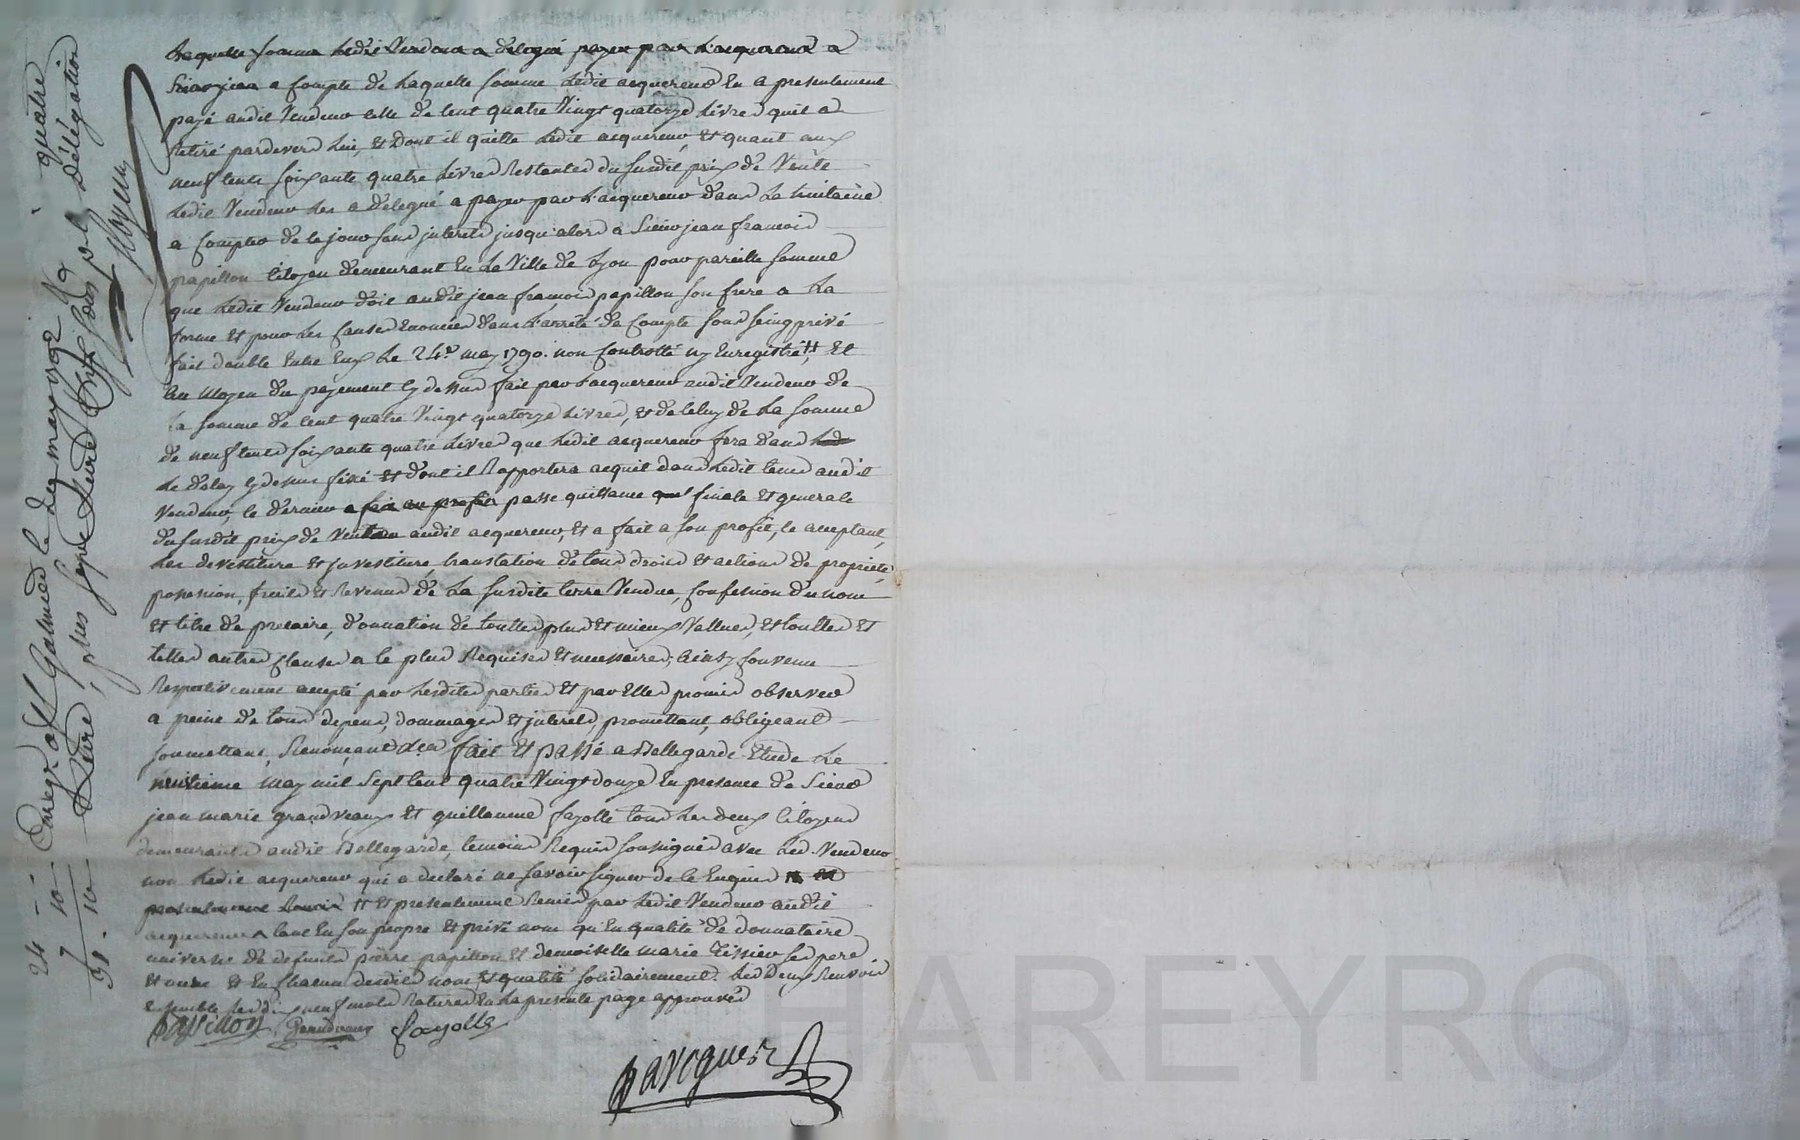 Laquelle somme ledit Vendeur a délégué payer par l'acquereur a
a compte de Laquelle somme Ledit acquereur En a presentement
payé audit Vendeur celle de Cent quatre Vingt quatorze Livres quil a
Retiré pardevers Lui, Et Dont il quitte Ledit acquereur, Et quant aux
neuf Cents soixante quatre Livres Restantes du susdit prix de Vente
Ledit Vendeur Les a délegué a payer par L'acquereur dans La huitaine
a Compter de ce jour sans jnterets jusqu'alors a Sieur jean francois
papillon Citoyen demeurant En La Ville de Lyon pour pareille somme
que Ledit Vendeur doit audit jean francois papillon son frere a La
forme Et pour Les Causes Enoncées dans L'arrêté de Compte sous seing privé
fait double Entre Eux Le 24e. may 1790. non Controllé ny Enregistré, # Et
Au Moyen du payement cy dessus fait par L'acquereur audit Vendeur de
La somme de Cent quatre Vingt quatorze Livres, Et de Celuy de La somme
de neuf Cents soixante quatre Livres que Ledit acquereur fera dans
Le délay cy dessus fixé Et dont il Rapportera acquit dans Ledit tems audit
Vendeur, le dernier a fait au profit passe quittance finale Et generale
du susdit prix de Vente audit acquereur, Et a fait a son profit, Ce acceptant,
Les devestiture Et jnvestiture, translation de tous droits Et actions de proprieté,
possession, fruits Et Revenus de La susdite terre Vendue, Confession du nom
Et titre de precaire, donnation de touttes plus Et mieux Vallues, Et touttes Et
telles autres Clauses a ce plus Requises Et necessaires; Ainsy Convenu
Respectivement accepté par Lesdites parties Et par Elles promis observer
a peine de tous depens, dommages Et jnterets, promettant, obligeant
soumettant, Renonçant &ca fait Et passé a Bellegarde Etude Le
neuvieme may mil sept Cent quatre Vingt douze En presence de Sieurs
jean marie grandveaux Et guillaume fayolle tous Les deux Citoyens
demeurants audit Bellegarde, temoins Requis soussignés avec Led. Vendeur
non Ledit acquereur qui a declaré ne savoir signer de Ce Enquis
# Et presentement Remis par Ledit Vendeur audit
acquereur tant En son propre Et privé nom qu'En qualité de donnataire
universel de defunts pierre papillon Et demoiselle marie Tissier ses pere
Et mere Et En Chacun desdits noms Et qualité solidairement. Les deux Renvois
Ensemble Les dix neuf mots Raturés En La presente page approuvés
papillon Grandveaux fayolle
Enregtré a St Galmier le dix may 1792 Rg quatre